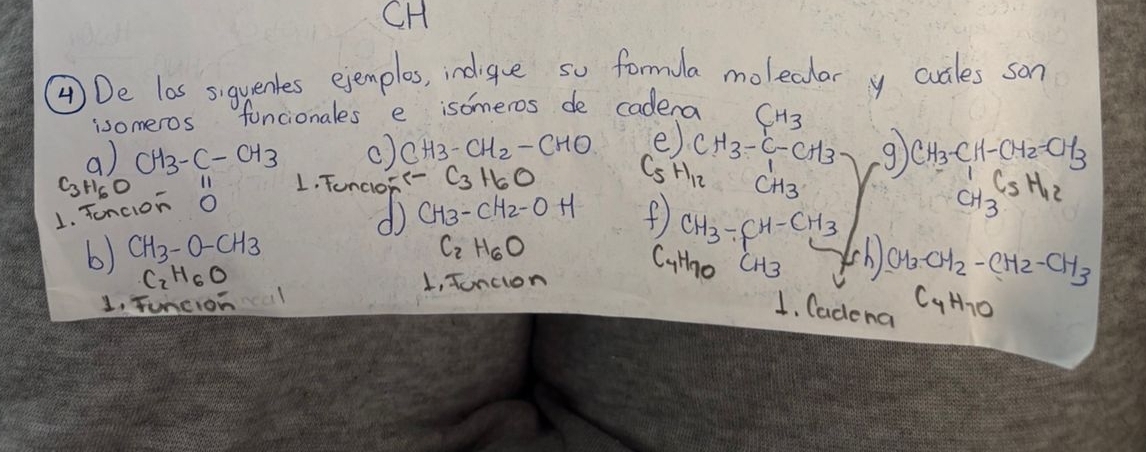 CH
4) De los siguientes ejemplos, indique su formula molecular y cuáles son
isomeros funcionales e isómeros de cadena
a) CH3-C-CH3
||
O
C3H6O
1. Función
b) CH3-O-CH3
C2H6O
1. Función
c) CH3-CH2-CHO
1. Función <- C3H6O
d) CH3-CH2-OH
C2H6O
1. Funcion
CH3
e) CH3-C-CH3
C5H12 CH3
f) CH3-CH-CH3
C4H10 CH3
g) CH3-CH-CH2-CH3
CH3 C5H12
h) CH3-CH2-CH2-CH3
C4H10
1. Cadena